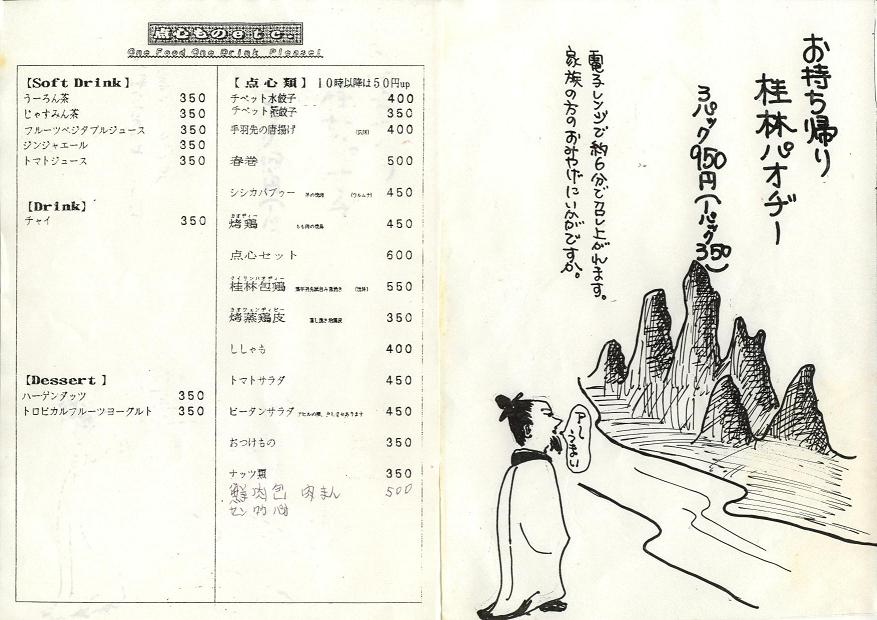 点心ものetc.
One Food One Drink Please!
【Soft Drink】
うーろん茶 350
じゃすみん茶 350
フルーツベジタブルジュース 350
ジンジャエール 350
トマトジュース 350
【Drink】
チャイ 350
【Dessert】
ハーゲンダッツ 350
トロピカルフルーツヨーグルト 350
【点心類】 10時以降は50円up
チベット水餃子 400
チベット蒸餃子 350
手羽先の唐揚げ 400
春巻 500
シシカバブゥー 450
カオヂィー
烤鶏 450
点心セット 600
桂林包鶏 550
烤蒸鶏皮 350
ししゃも 400
トマトサラダ 450
ピータンサラダ 450
おつけもの 350
ナッツ類 350
鮮肉包 肉まん 500
セン ロウ パオ
お持ち帰り
桂林パオヂー
3パック950円(1パック350)
電子レンジで約6分で召し上がれます。
家族の方のおみやげにいかがですか。
アーうまい